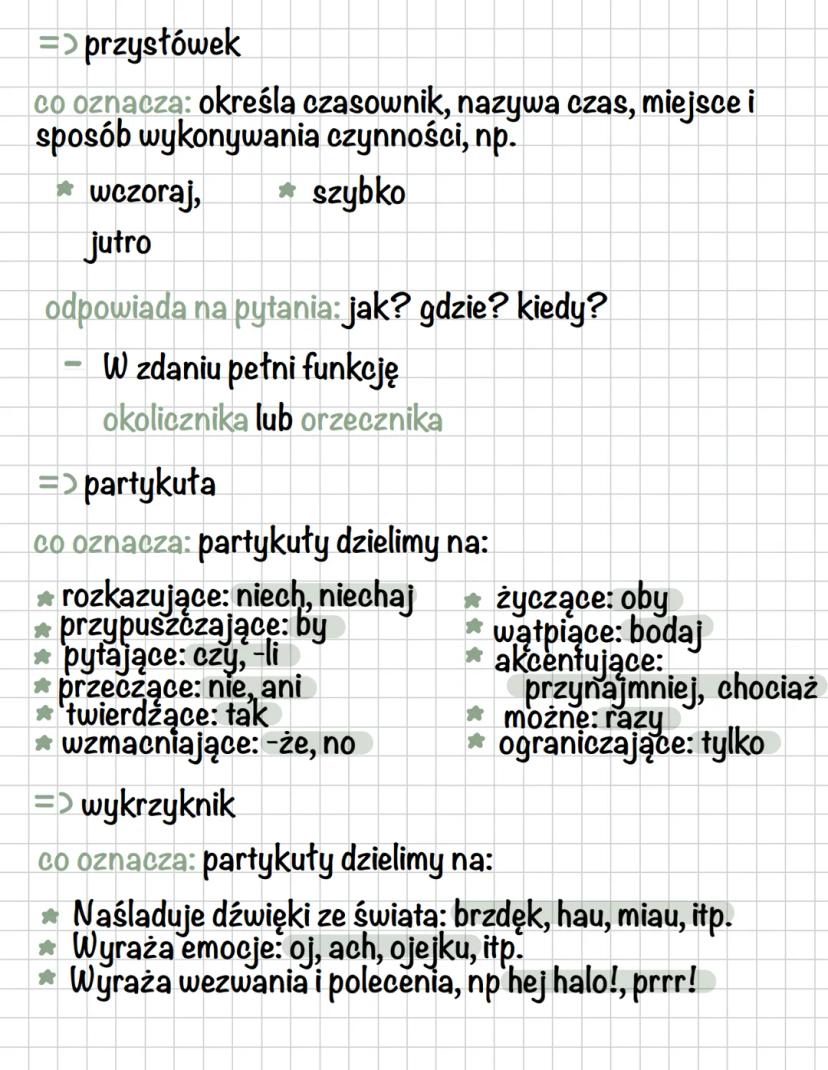 => przysłówek
co oznacza: określa czasownik, nazywa czas, miejsce i
sposób wykonywania czynności, np.
* wczoraj, * szybko
jutro
odpowiada na pytania: jak? gdzie? kiedy?
- W zdaniu pełni funkcję
okolicznika lub orzecznika
=> partykuła
co oznacza: partykuły dzielimy na:
* rozkazujące: niech, niechaj
* przypuszczające: by
* pytające: czy, -li
* przeczące: nie, ani
* twierdzące: tak
* wzmacniające: -że, no
* życzące: oby
* wątpiące: bodaj
* akcentujące:
przynajmniej, chociaż
* możne: razy
* ograniczające: tylko
=> wykrzyknik
co oznacza: partykuły dzielimy na:
* Naśladuje dźwięki ze świata: brzdęk, hau, miau, itp.
* Wyraża emocje: oj, ach, ojejku, itp.
* Wyraża wezwania i polecenia, np hej halo!, prrr!